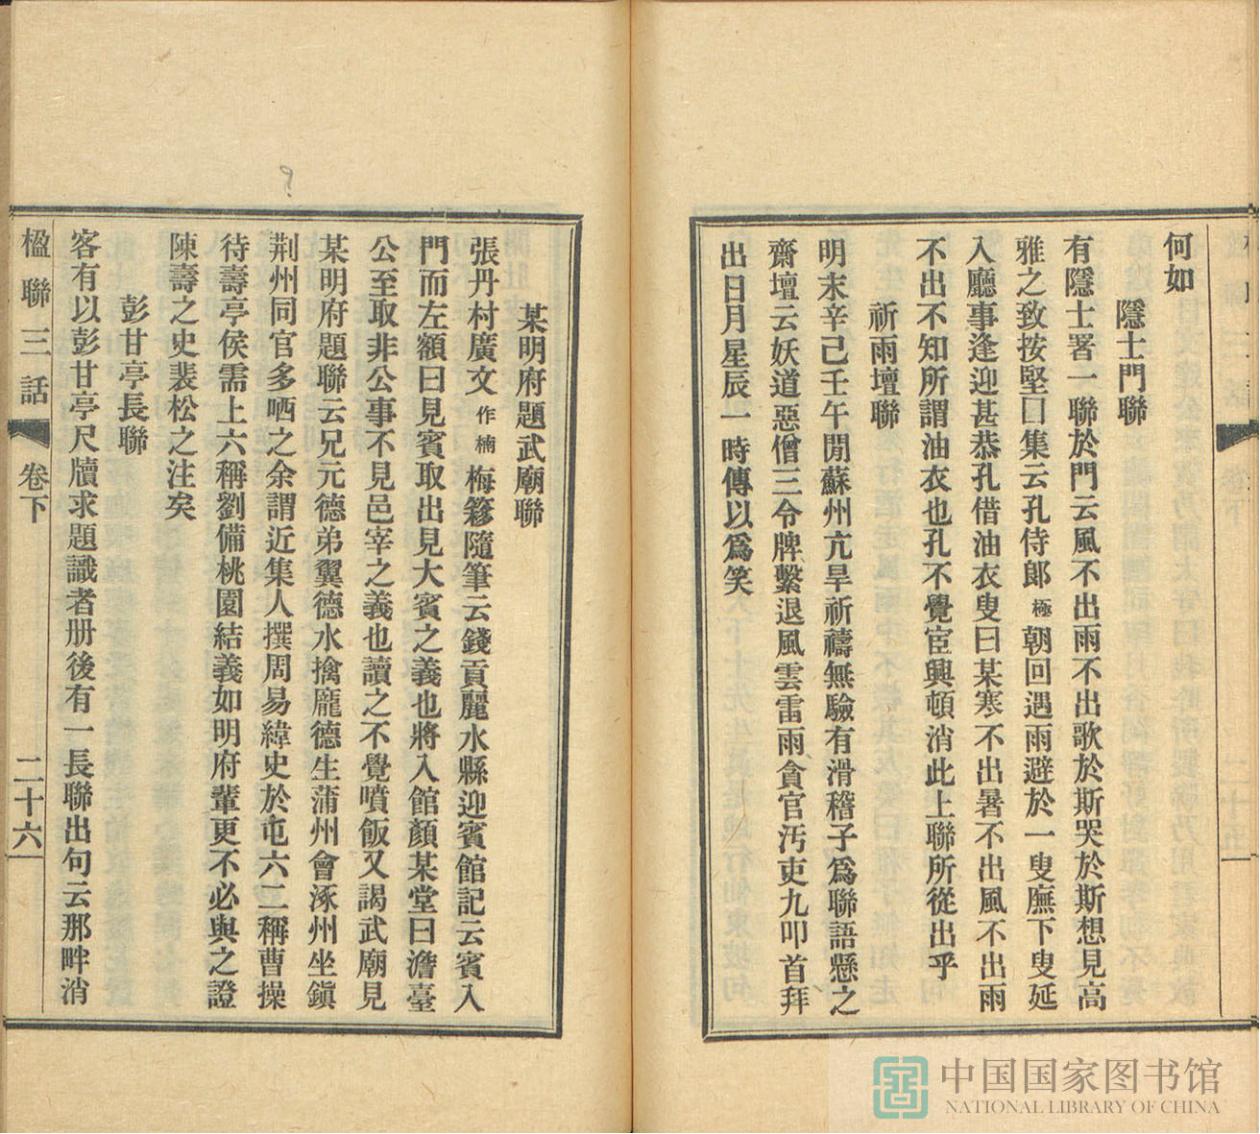 何如
隱士門聯
有隱士署一聯於門云風不出雨不出歌於斯哭於斯想見高
雅之致按堅囗集云孔侍郎極朝回遇雨避於一叟廡下叟延
入廳事逢迎甚恭孔借油衣叟曰某寒不出暑不出風不出雨
不出不知所謂油衣也孔不覺宦興頓消此上聯所從出乎
祈雨壇聯
明末辛己壬午閒蘇州亢旱祈禱無驗有滑稽子爲聯語懸之
齋壇云妖道惡僧三令牌繫退風雲雷雨貪官汚吏九叩首拜
出日月星辰一時傳以爲笑
某明府題武廟聯
張丹村廣文作楠梅簃隨筆云錢貢麗水縣迎賓館記云賓入
門而左額曰見賓取出見大賓之義也將入館顏某堂曰澹臺
公至取非公事不見邑宰之義也讀之不覺噴飯又謁武廟見
某明府題聯云兄元德弟翼德水擒龐德生蒲州會涿州坐鎭
荆州同官多哂之余謂近集人撰周易緯史於屯六二稱曹操
待壽亭侯需上六稱劉備桃園結義如明府輩更不必與之證
陳壽之史裴松之注矣
彭甘亭長聯
客有以彭甘亭尺牘求題識者册後有一長聯出句云那畔消
楹聯三話
卷下
二十六
中国国家图书馆
NATIONAL LIBRARY OF CHINA